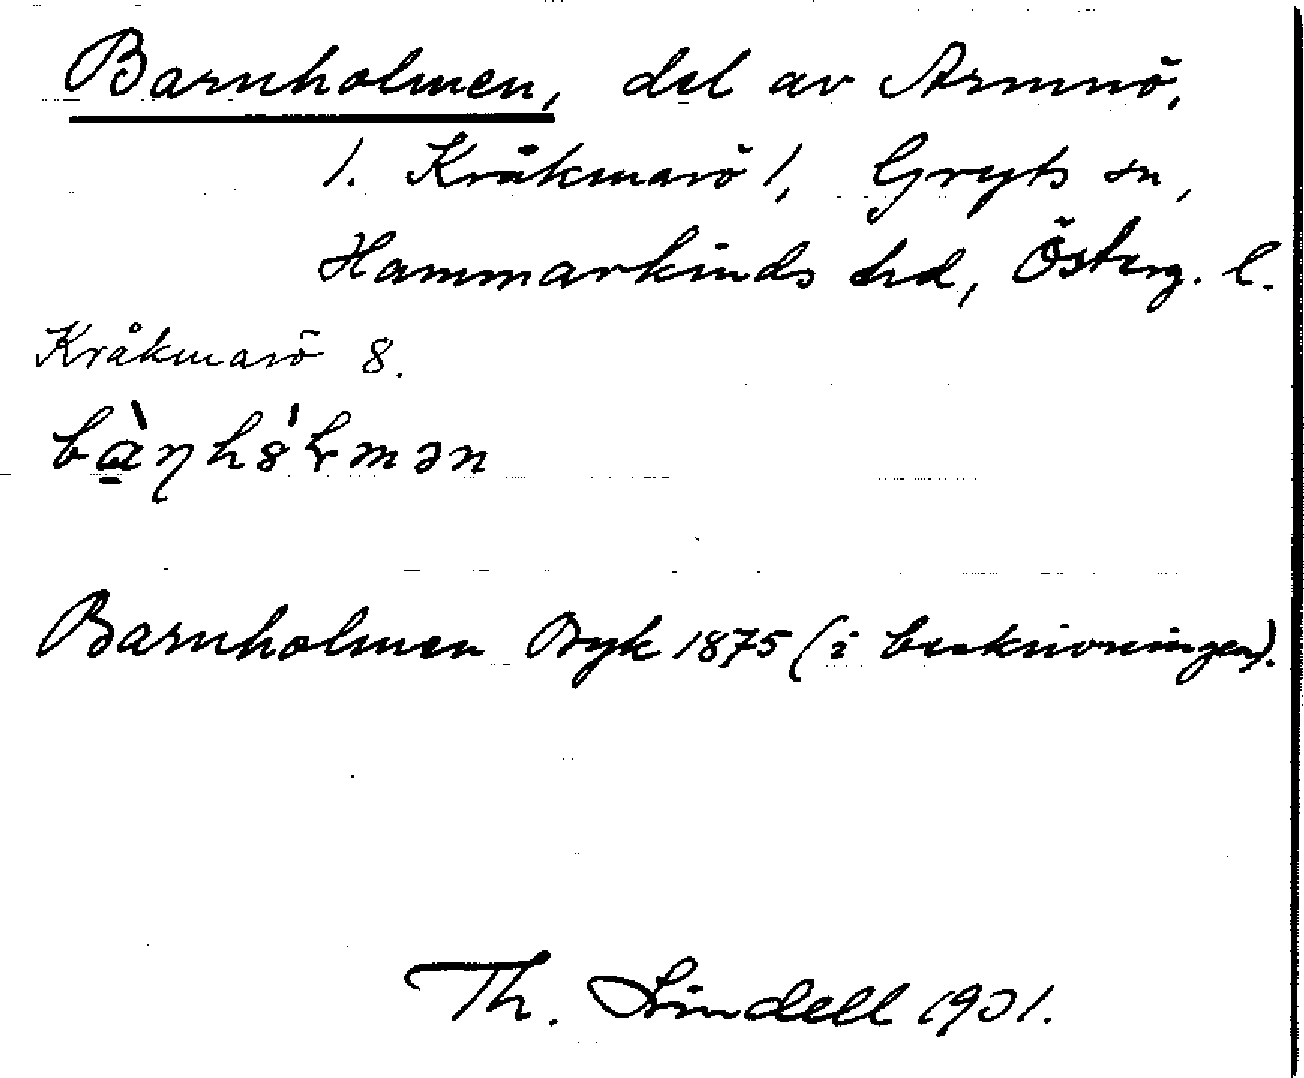 Barnholmen, del av Armnö,
/. Kråkmarö /, Gryts sn,
Hammarkinds hd, Österg. l.
Kråkmarö 8.
Barnholmen Dyk 1875 (i beskrivningen).
Th. Lindell 1931.